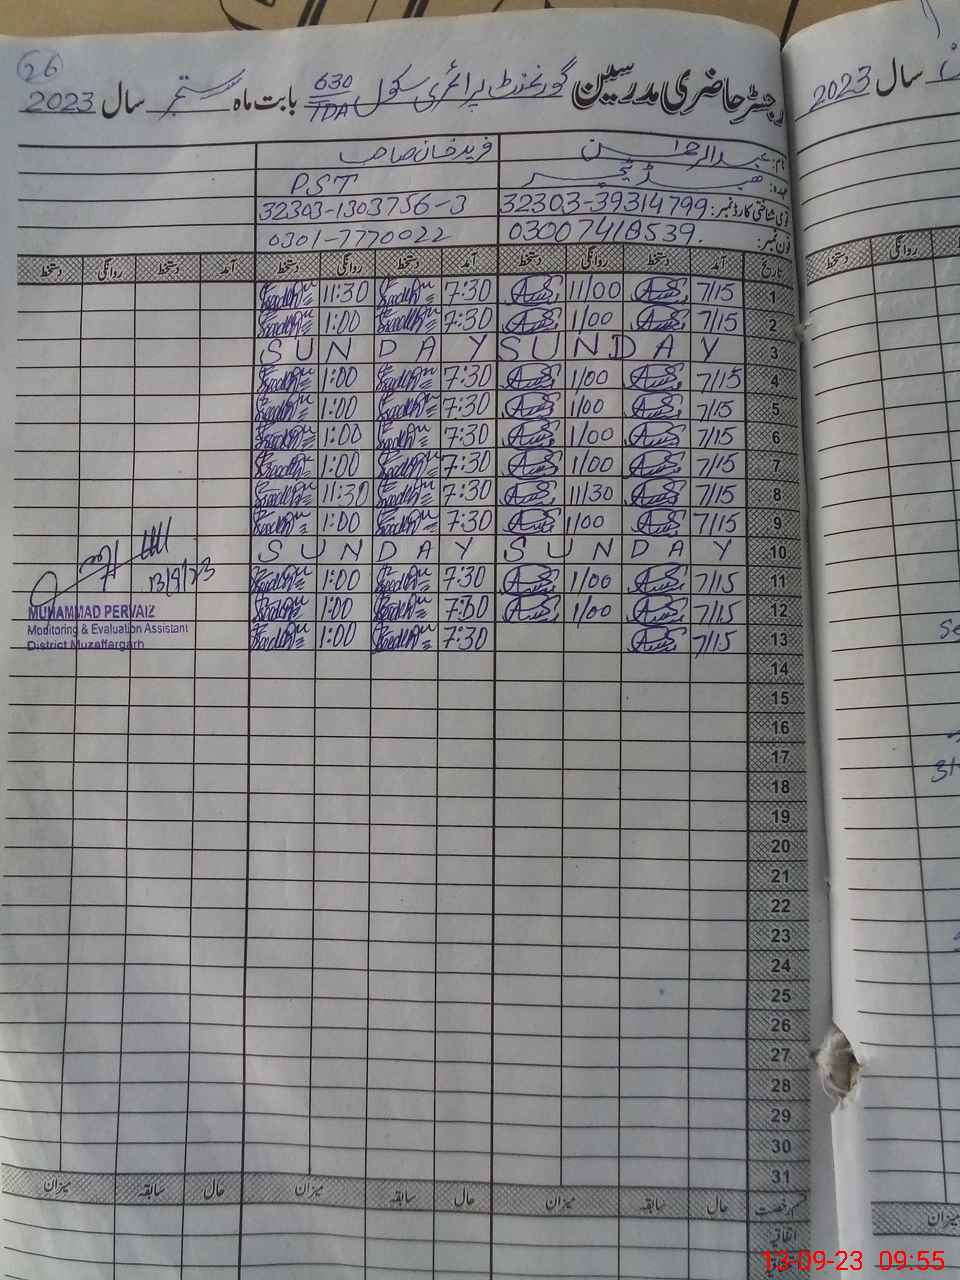 26
رجسٹر حاضری مدرسین گورنمنٹ پرائمری سکول 630/TDA بابت ماہ ستمبر سال 2023
نام: عبدالرحمٰن فرید خان صاحب
عہدہ: ہیڈ ٹیچر PST
قومی شناختی کارڈ نمبر: 32303-39314799 32303-1303756-3
فون نمبر: 03007418539. 0301-7770022
تاریخ آمد دستخط روانگی دستخط آمد دستخط روانگی دستخط آمد دستخط روانگی دستخط
1 7/15 11/00 7:30 11:30
2 7/15 1/00 7:30 1:00
3 SUNDAY SUNDAY
4 7/15 1/00 7:30 1:00
5 7/15 1/00 7:30 1:00
6 7/15 1/00 7:30 1:00
7 7/15 1/00 7:30 1:00
8 7/15 11/30 7:30 11:30
9 7/15 1/00 7:30 1:00
10 SUNDAY SUNDAY
11 7/15 1/00 7:30 1:00
12 7/15 1/00 7:30 1:00
13 7/15 7:30 1:00
13/9/23
MUHAMMAD PERVAIZ
Monitoring & Evaluation Assistant
District Muzaffargarh
14
15
16
17
18
19
20
21
22
23
24
25
26
27
28
29
30
31
قسم رخصت حال سابقہ میزان حال سابقہ میزان حال سابقہ میزان
اتفاقیہ
سال 2023
روانگی دستخط
میزان
13-09-23 09:55